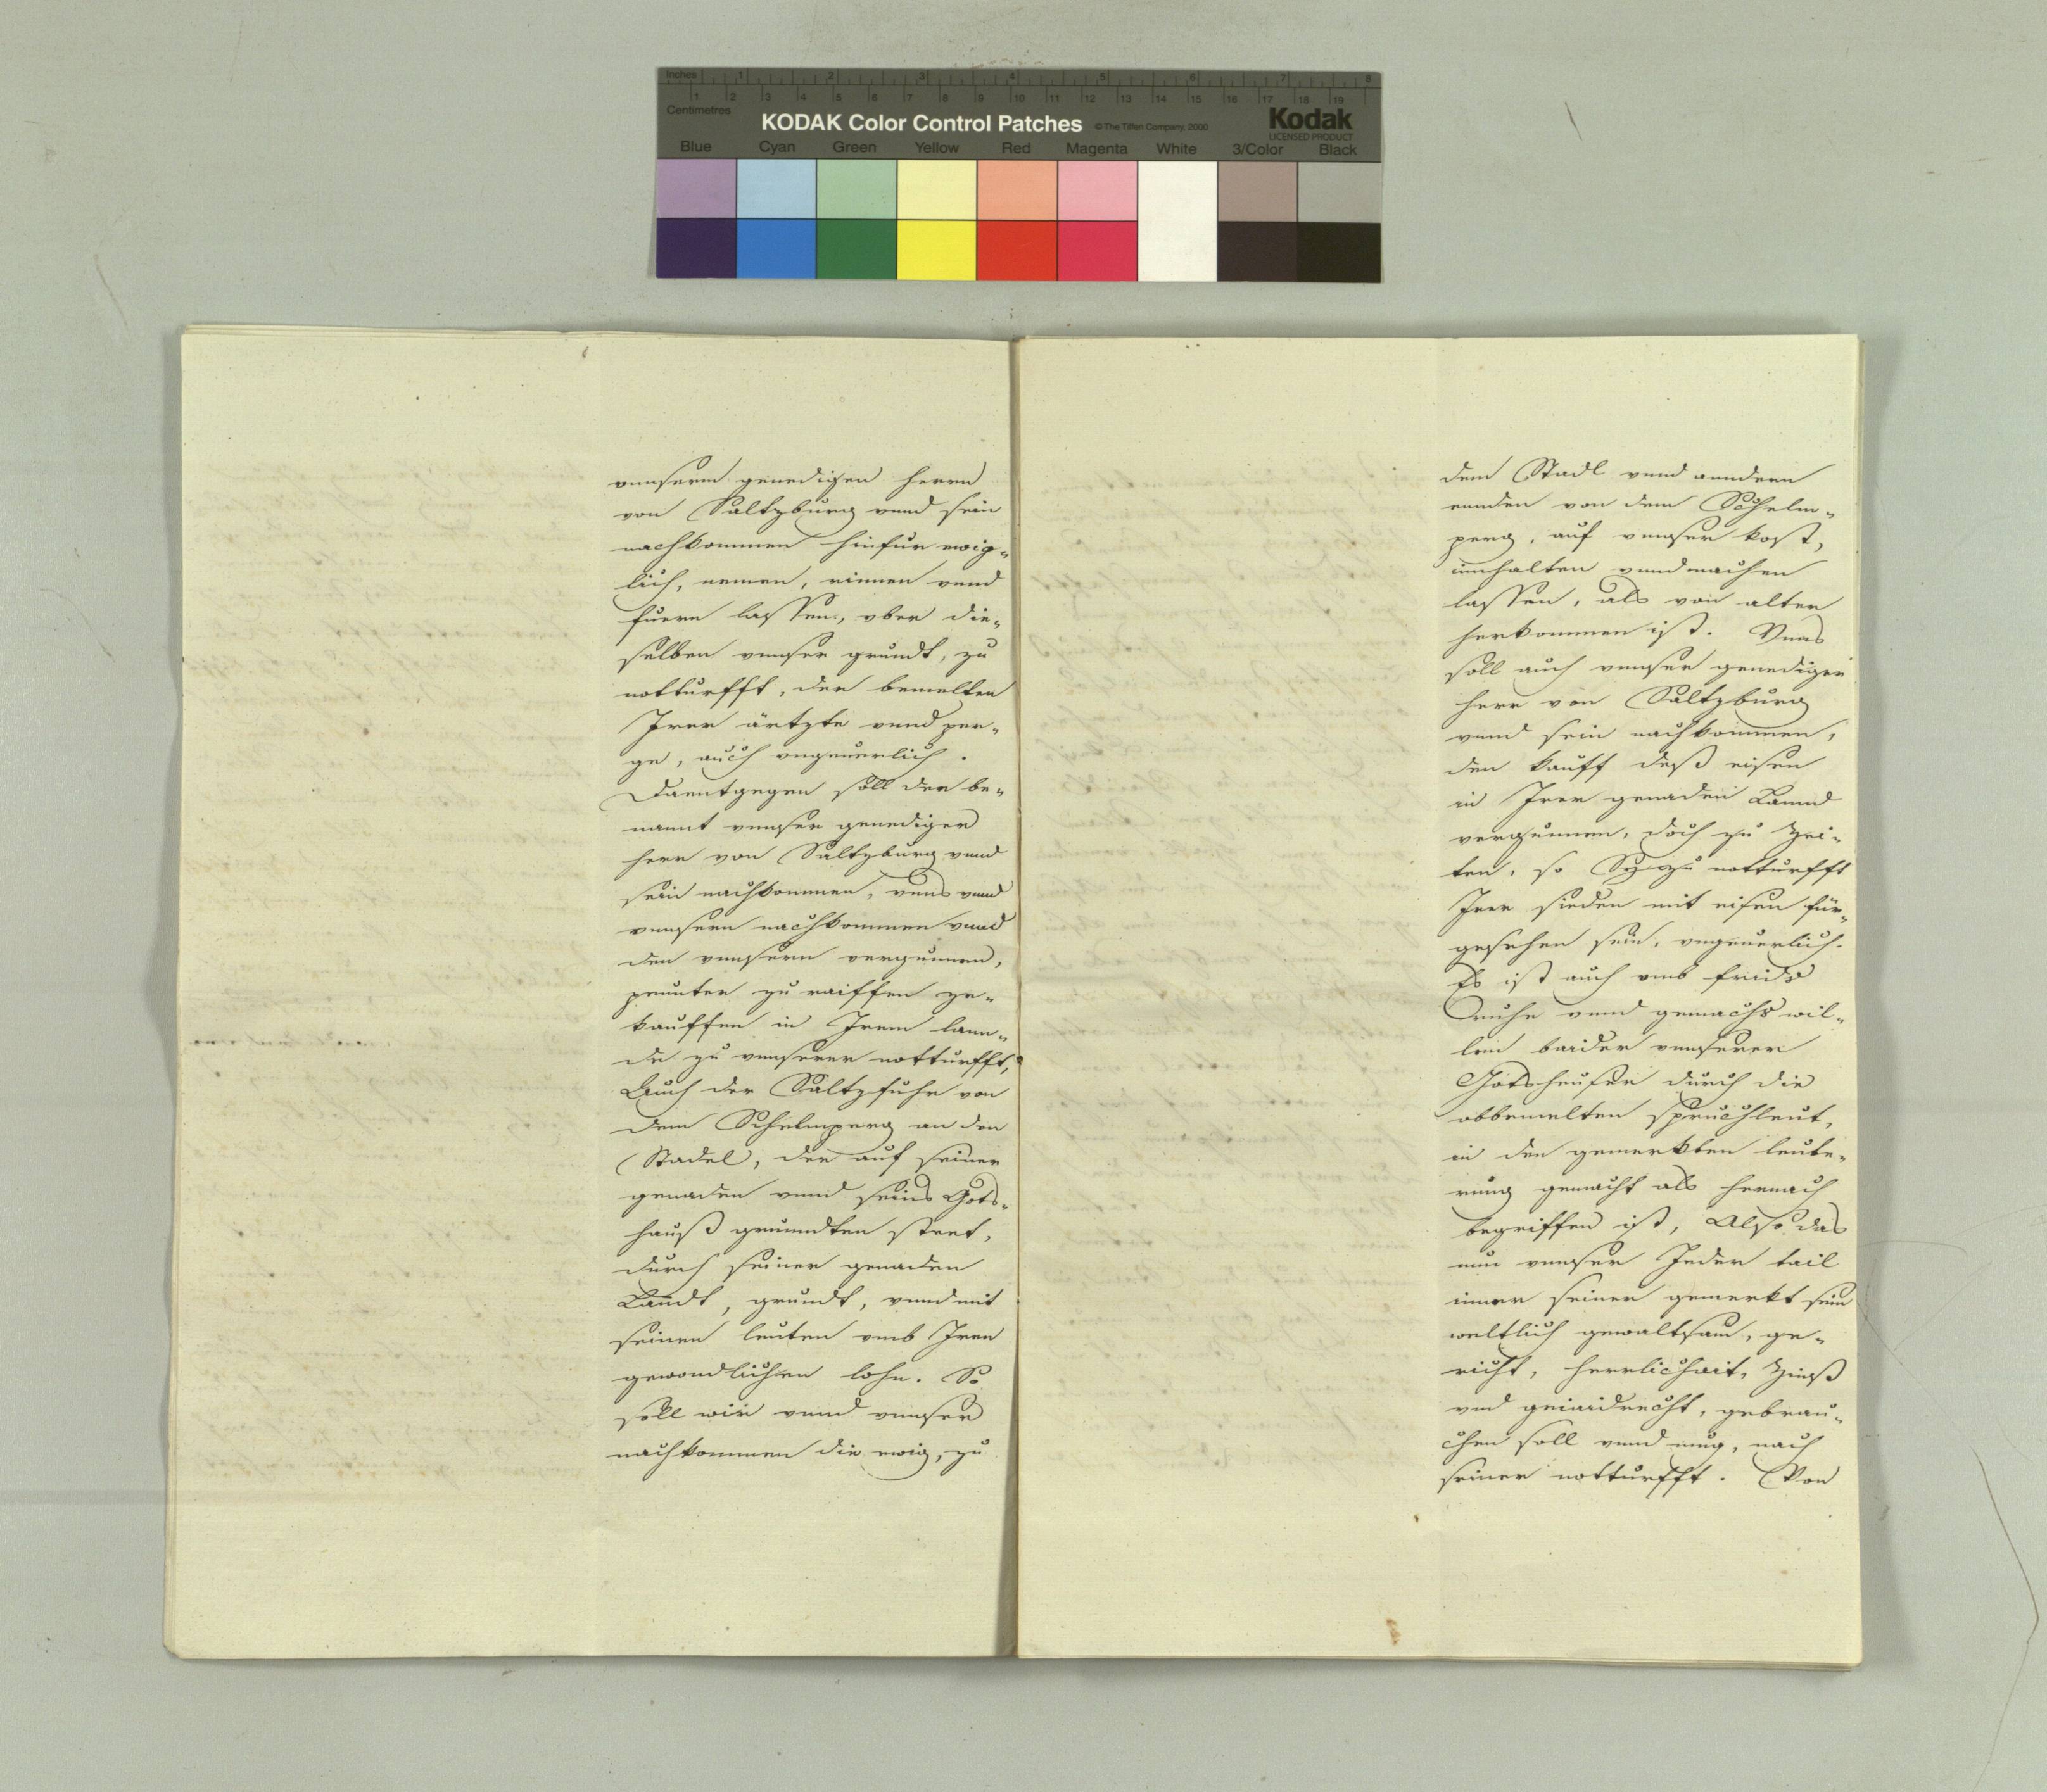 Inches 1 2 3 4 5 6 7 8
1 2 3 4 5 6 7 8 9 10 11 12 13 14 15 16 17 18 19
Centimetres
KODAK Color Control Patches © The Tiffen Company, 2000 Kodak
LICENSED PRODUCT
Blue Cyan Green Yellow Red Magenta White 3/Color Black
vnnserm genedigen herrn
von Saltzburg vnnd sein
nachkommen hinfur ewig-
lich, nemen, rinnen vnnd
fuern lassen, vber die-
selben vnnser grundt, zu
notturfft, der bemelten
Irer ärtzte vnnd per-
ge, auch vngeuerlich.
Daentgegen soll der be-
nannt vnnser genediger
herr von Saltzburg vnnd
sein nachkommen, vnns vnnd
vnnsern nachkommen vnnd
den vnnsern vergunnen,
pannter zu raiffen ze-
kauffen in Irem lann-
de zu vnnserer notturfft,
Auch der Saltzfuhr von
dem Schelmperg an den
Stadel, der auf seiner
genaden vnnd seins Gots-
hauß grunndten steet,
durch seiner genaden
Lanndt, grundt, vnnd mit
seinen leuten vmb Iren
gewondlichen lohn. So
soll wir vnnd vnnser
nachkommen die ewig, zu
dem Stadl vnnd anndern
ennden von dem Schelm-
perg, auf vnnser kost,
innhalten vnnd machen
lassen, als von alter
herkommen ist. Vnns
soll auch vnnser genediger
herr von Saltzburg
vnnd sein nachkommen,
den kauff deß eisen
in Irer genaden Lannd
vergunnen, doch zu Zei-
ten, so Sy zu notturfft
Irer sieden mit eisen für-
gesehen sein, vngeuerlich.
Es ist auch vmb frids
ruhe vnnd gemachs wil-
len baider vnnserer
Gotsheuser durch die
obbemelten spruchleut,
in den gemerkten leute-
rung gemacht als hernach
begriffen ist, Also das
nun vnnser Jeder tail
inner seiner gemerkt sein
weltlich gewaltsam, ge-
richt, herrlichait, Zinß
vnd gejaidrecht, gebrau-
chen soll vnnd mug, nach
seiner notturfft. Von